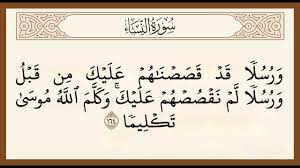 سُورَةُ النِّسَاءِ
وَرُسُلًا قَدْ قَصَصْنَٰهُمْ عَلَيْكَ مِن قَبْلُ
وَرُسُلًا لَّمْ نَقْصُصْهُمْ عَلَيْكَ ۚ وَكَلَّمَ اللَّهُ مُوسَىٰ
تَكْلِيمًا ١٦٤